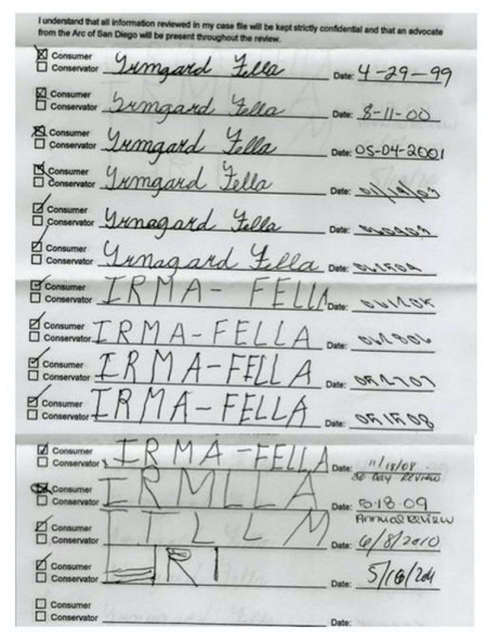 I understand that all information reviewed in my case file will be kept strictly confidential and that an advocate
from the Arc of San Diego will be present throughout the review.
Consumer
Conservator Yrmgard Fella Date: 4-29-99
Consumer
Conservator Yrmgard Fella Date: 8-11-00
Consumer
Conservator Yrmgard Fella Date: 05-04-2001
Consumer
Conservator Yrmgard Fella Date:
Consumer
Conservator Yrmagard Fella Date:
Consumer
Conservator Yrmagard Fella Date:
Consumer
Conservator IRMA- FELLA Date:
Consumer
Conservator IRMA-FELLA Date:
Consumer
Conservator IRMA-FELLA Date: 052707
Consumer
Conservator IRMA-FELLA Date: 051508
Consumer
Conservator IRMA-FELLA Date: 11/18/08
30 DAY REVIEW
Consumer
Conservator IRMLLA Date: 5-18-09
Annual Review
Consumer
Conservator ITLLM Date: 6/8/2010
Consumer
Conservator RI Date:
Consumer
Conservator Date: